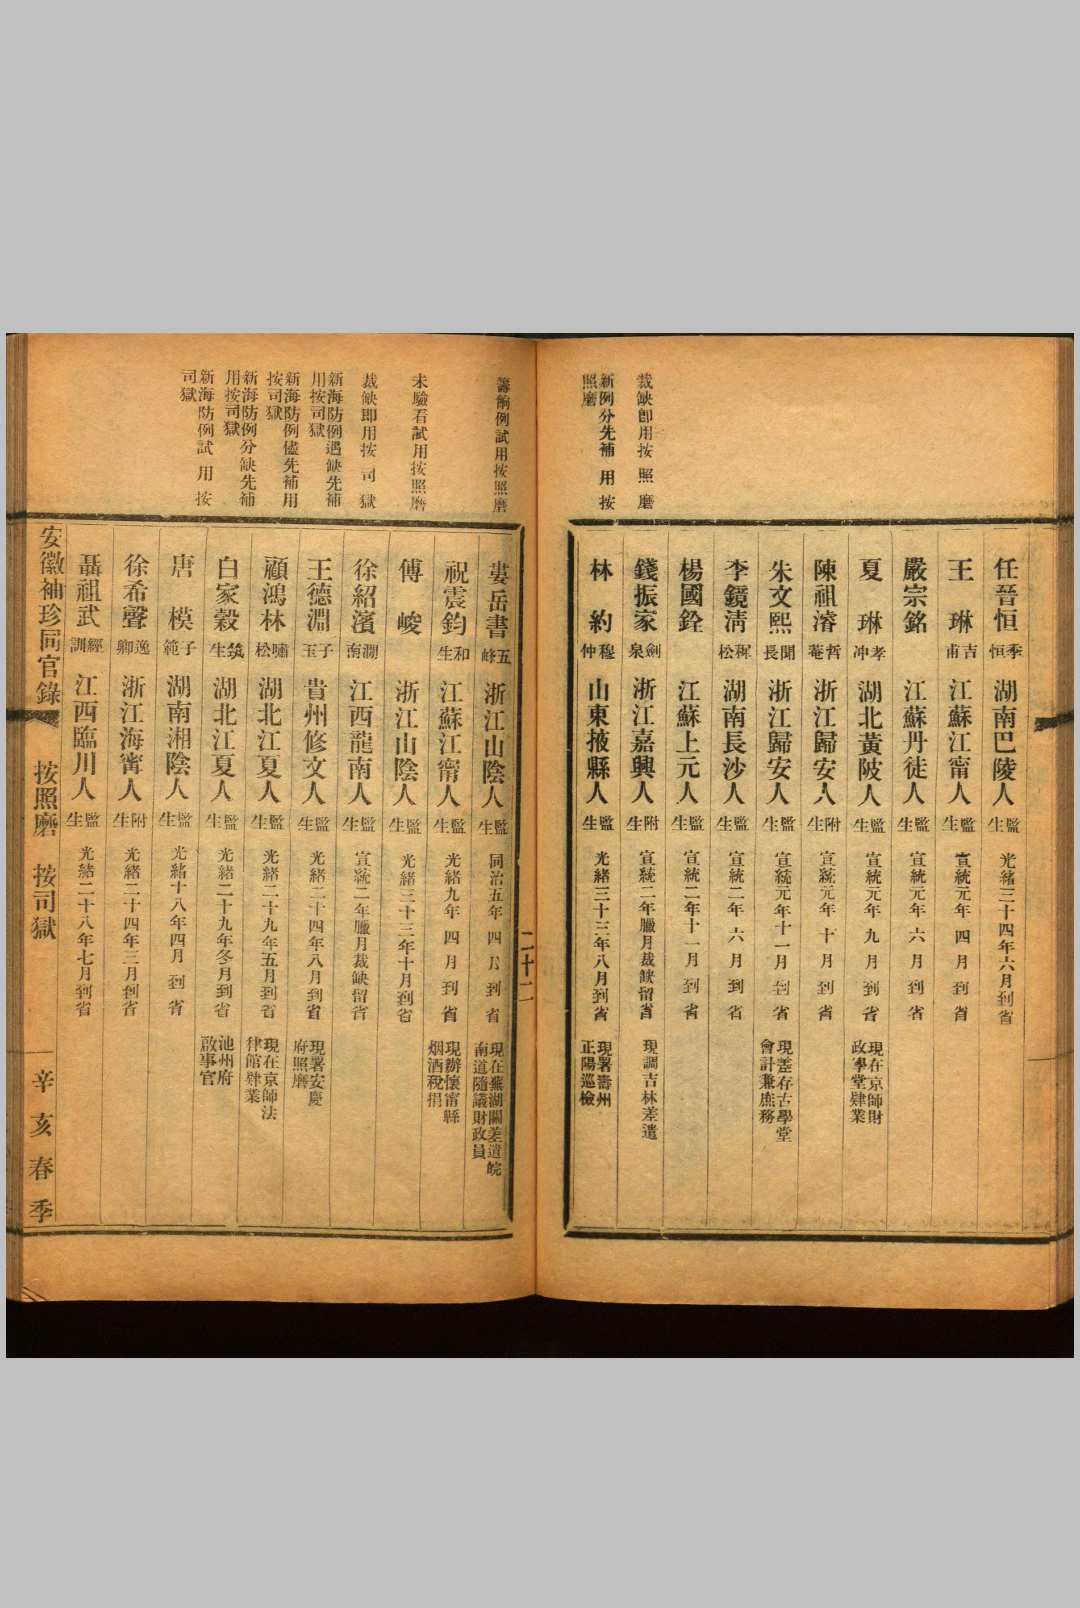 任晉恒 季恒 湖南巴陵人 監生 光緒三十四年六月到省
王琳 吉甫 江蘇江甯人 監生 宣統元年四月到省
嚴宗銘 江蘇丹徒人 監生 宣統元年六月到省
夏琳 孝冲 湖北黃陂人 監生 宣統元年九月到省 現在京師財政學堂肄業
陳祖濬 哲菴 浙江歸安人 附生 宣統元年十月到省
朱文熙 聞長 浙江歸安人 監生 宣統元年十一月到省 現差存古學堂會計兼庶務
李鏡清 穉松 湖南長沙人 監生 宣統二年六月到省
楊國銓 江蘇上元人 監生 宣統二年十一月到省
裁缺卽用按照磨
錢振家 劍泉 浙江嘉興人 附生 宣統二年臘月裁缺留省 現調吉林差遣
新例分先補用按照磨
林約 穆仲 山東掖縣人 監生 光緒三十三年八月到省 現署壽州正陽巡檢
二十二
籌餉例試用按照磨
婁岳書 五峰 浙江山陰人 監生 同治五年四月到省 現在蕪湖關差遣皖南道隨議財政員
祝震鈞 和生 江蘇江甯人 監生 光緒九年四月到省 現辦懷甯縣烟酒稅捐
未驗看試用按照磨
傅峻 浙江山陰人 監生 光緒三十三年十月到省
裁缺卽用按司獄
徐紹濱 澗南 江西龍南人 監生 宣統二年臘月裁缺留省
新海防例遇缺先補用按司獄
王德淵 子玉 貴州修文人 監生 光緒二十四年八月到省 現署安慶府照磨
新海防例儘先補用按司獄
顧鴻林 嘯松 湖北江夏人 監生 光緒二十九年五月到省 現在京師法律館肄業
新海防例分缺先補用按司獄
白家穀 筑生 湖北江夏人 監生 光緒二十九年冬月到省 池州府啟事官
新海防例試用按司獄
唐模 子範 湖南湘陰人 監生 光緒十八年四月到省
徐希聲 逸卿 浙江海甯人 附生 光緒二十四年三月到省
聶祖武 經訓 江西臨川人 監生 光緒二十八年七月到省
安徽袖珍同官錄 按照磨 按司獄 辛亥春季